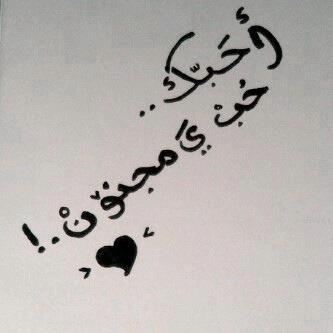 أحَبّك..
حُبْ يَ مجنۆنْ .!